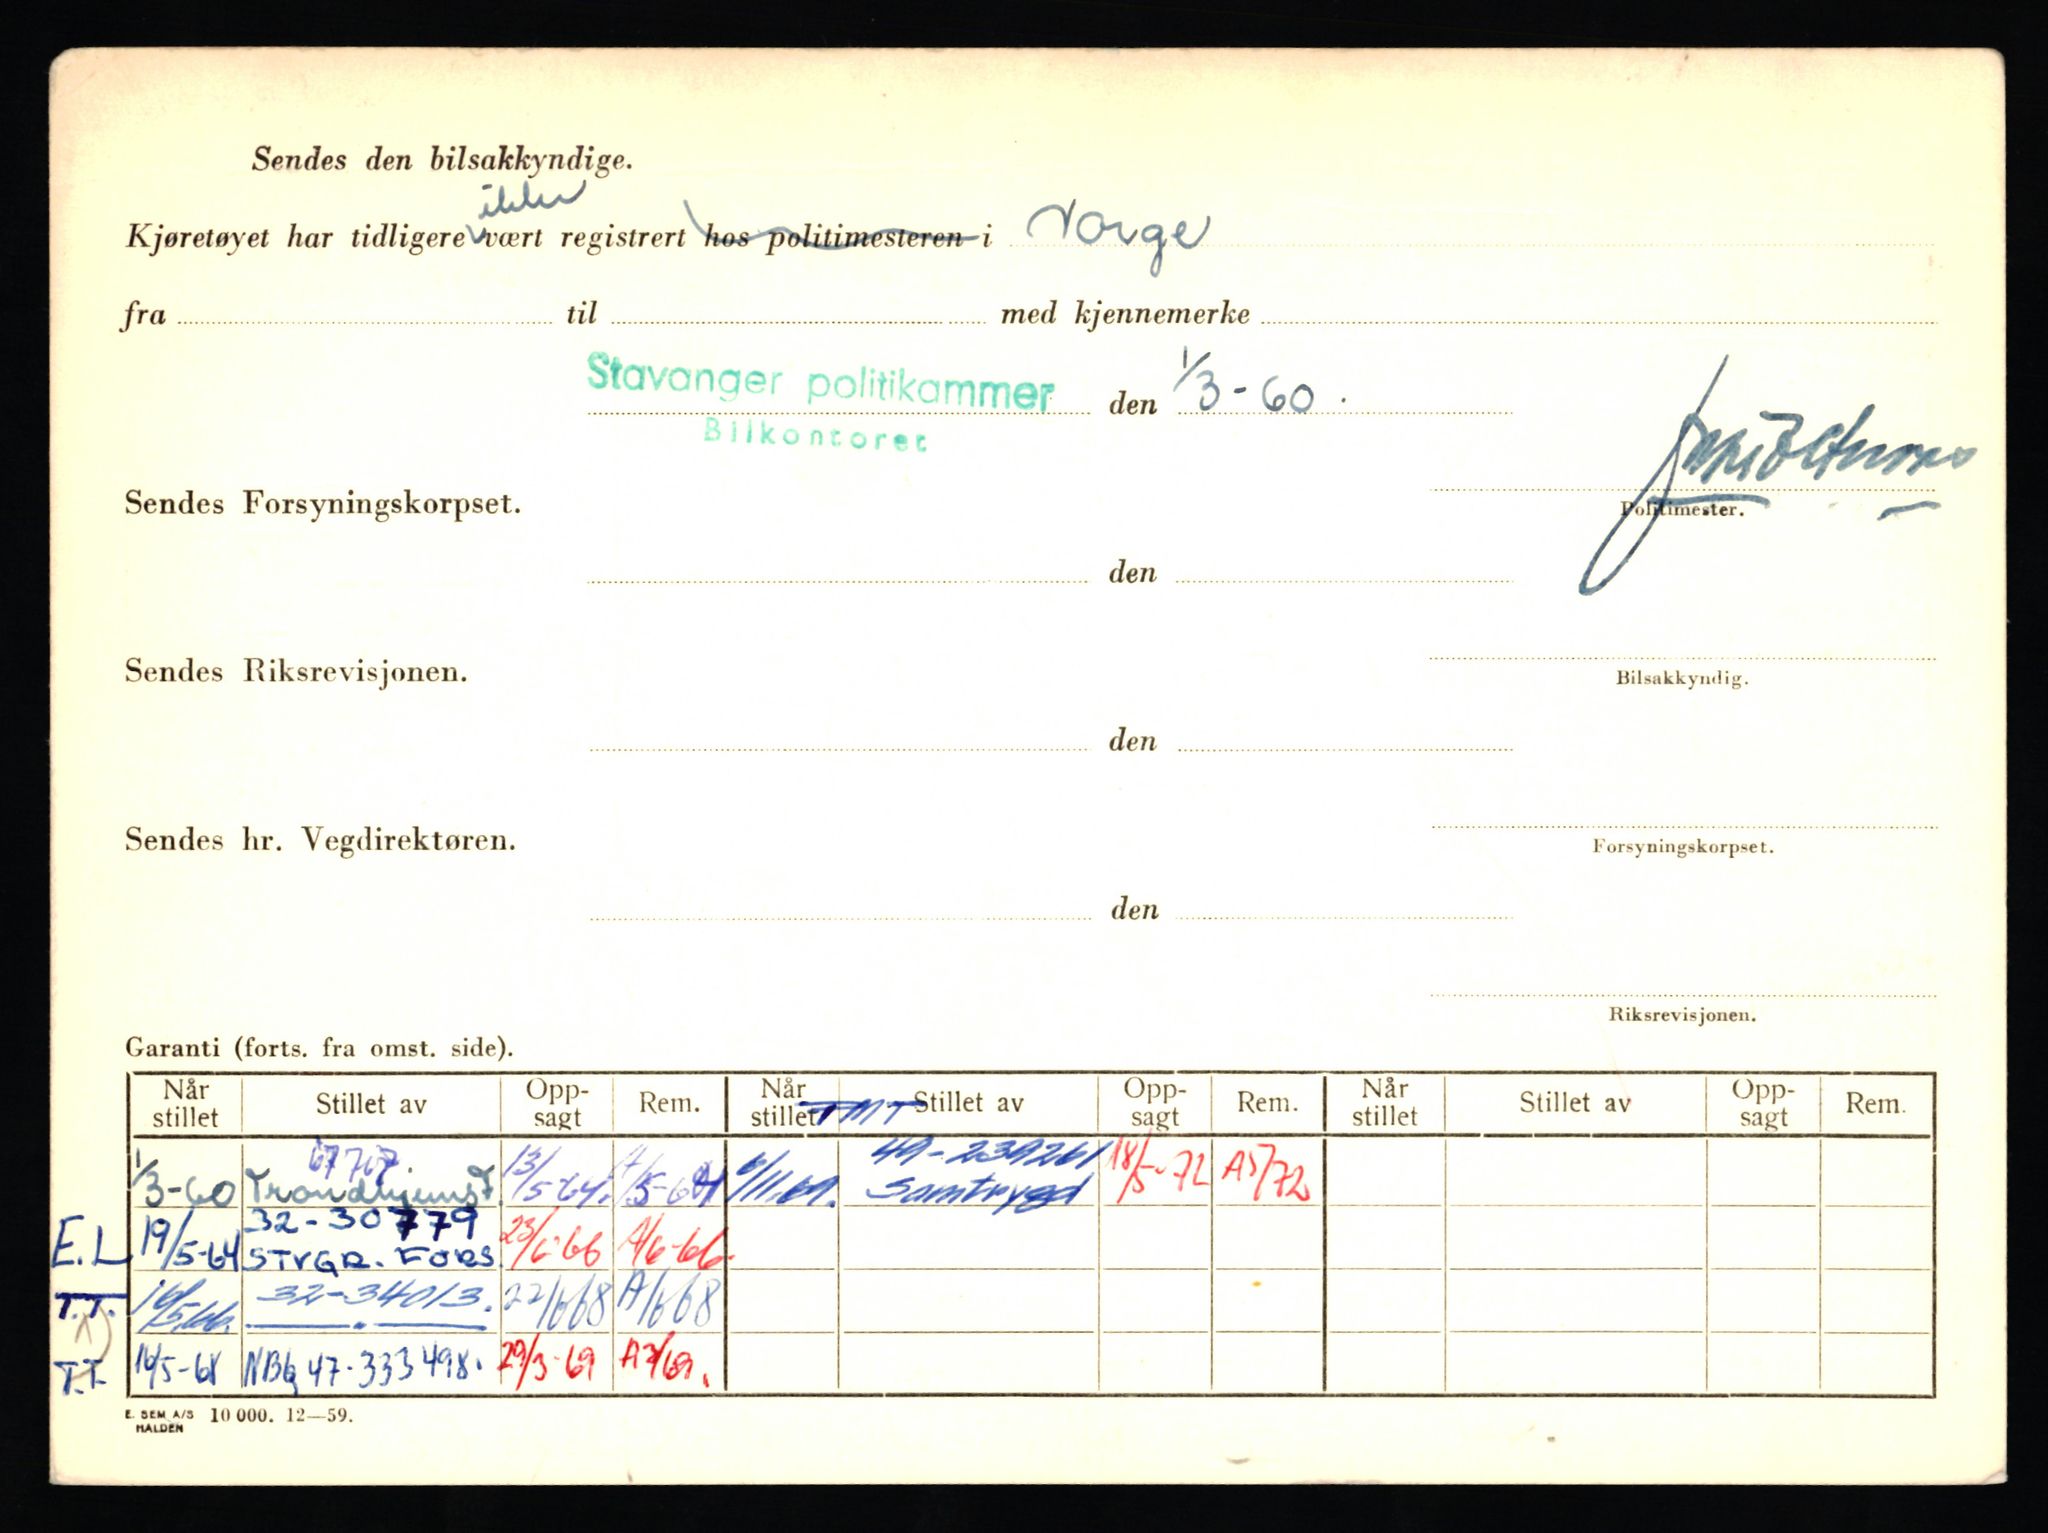 Sendes den bilsakkyndige.
ikke
Kjøretøyet har tidligere vært registrert hos politimesteren i Norge
fra til med kjennemerke
Stavanger politikammer den 1/3-60.
Bilkontoret
Sendes Forsyningskorpset.
Politimester.
den
Sendes Riksrevisjonen.
Bilsakkyndig.
den
Sendes hr. Vegdirektøren.
Forsyningskorpset.
den
Riksrevisjonen.
Garanti (forts. fra omst. side).
Når stillet Stillet av Opp-sagt Rem. Når stillet Stillet av Opp-sagt Rem. Når stillet Stillet av Opp-sagt Rem.
TMT
67707. 49-239261
1/3-60 Trondhjemsf. 13/5-64. A/5-64 6/11.69. Samtrygd 18/5-72 A5/72
E.L 19/5-64 32-30779 STVGR. FORS. 23/6-66 A/6-66
T.T. 16/5.66. 32-34013. 22/668 A/668
T.T. 16/5-68 NBG 47-333498. 29/3-69 A3/69.
E. SEM A/S HALDEN 10 000. 12—59.